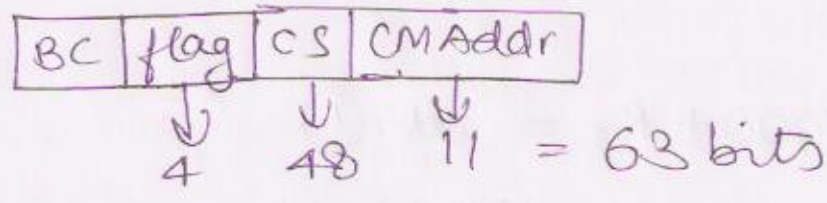 BC flag CS CMAddr
↓ ↓ ↓
4 48 11 = 63 bits